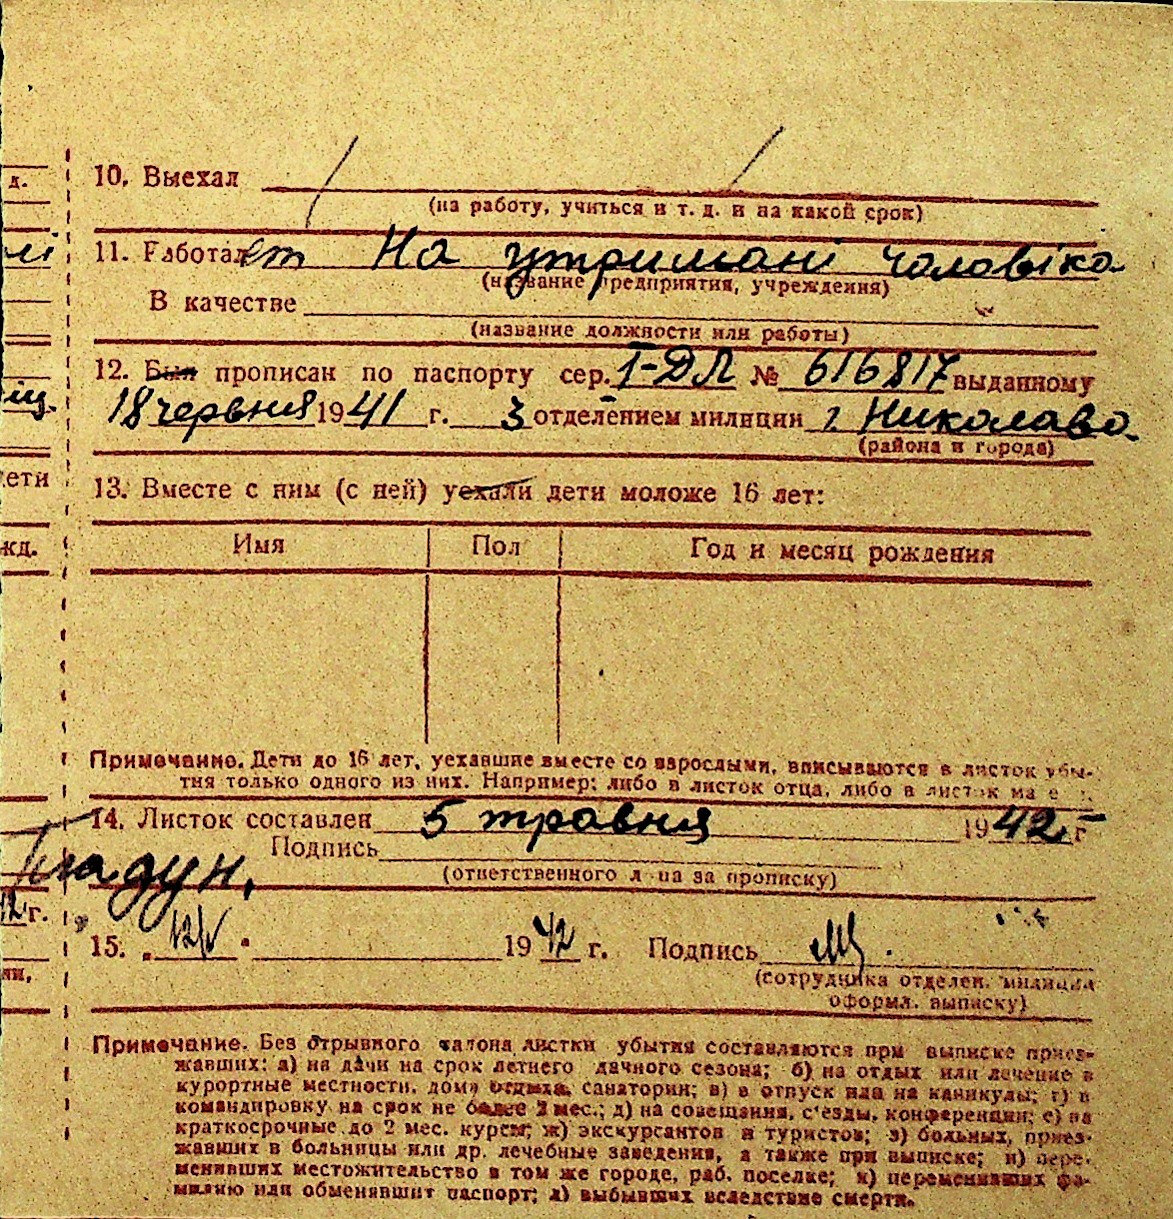 д.
10. Выехал
(на работу, учиться и т. д. и на какой срок)
11. Работает На утримані чоловіка
(название предприятия, учреждения)
В качестве
(название должности или работы)
12. Был прописан по паспорту сер. I-ДЛ № 616817 выданному
18 червня 1941 г. 3 отделением милиции г. Николаева
(района и города)
дети
13. Вместе с ним (с ней) уехали дети моложе 16 лет:
жд.
Имя Пол Год и месяц рождения
Примечание. Дети до 16 лет, уехавшие вместе со взрослыми, вписываются в листок убы-
тия только одного из них. Например: либо в листок отца, либо в листок ма
14. Листок составлен 5 травня 1942 г
Подпись
(ответственного л ца за прописку)
г.
15. „12/V" 1942 г. Подпись
(сотрудника отделен. милиции
оформл. выписку)
Примечание. Без отрывного талона листки убытия составляются при выписке приез-
жавших: а) на дачи на срок летнего дачного сезона; б) на отдых или лечение в
курортные местности, дома отдыха, санатории; в) в отпуск или на каникулы; г) в
командировку на срок не более 2 мес.; д) на совещания, с'езды, конференции; е) на
краткосрочные до 2 мес. курсы; ж) экскурсантов и туристов; з) больных, приез-
жавших в больницы или др. лечебные заведения, а также при выписке; и) пере-
менивших местожительство в том же городе, раб. поселке; к) переменивших фа-
милию или обменявшит паспорт; л) выбывших вследствие смерти.